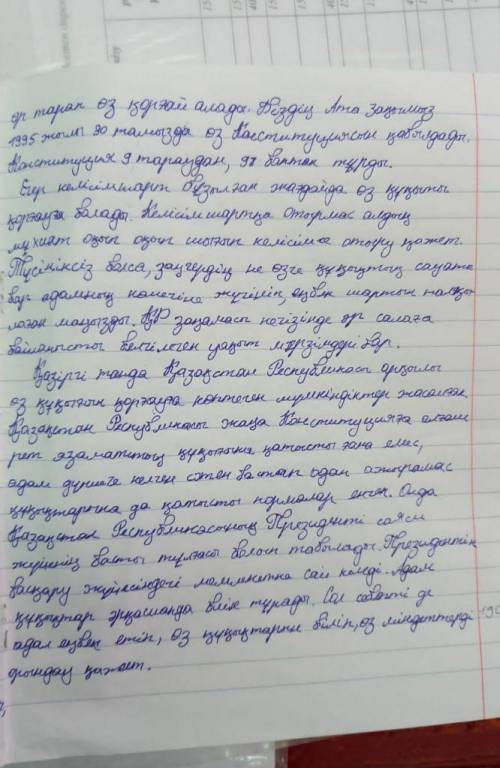 әр тарап өз қорғай алады. Біздің Ата заңымыз
1995 жылы 30 тамызда өз Конституциясын қабылдады.
Конституция 9 тараудан, 98 баптан тұрды.
Егер келісімшарт бұзылған жағдайда өз құқығын
қорғауға болады. Келісімшартқа отырмас алдың
мұхият оқып шығып келісімге отыру қажет.
Түсініксіз болса, заңгердің не өзге құқықтың сауаты
бар адамның көмегіне жүгініп, еңбек шартын талқы
лаған маңызды. ҚР заңамасы негізінде әр салаға
байланысты белгіленген уақыт мерзімдері бар.
Қазіргі таңда Қазақстан Республикасы арқылы
өз құқығын қорғауға көптеген мүмкіндіктер жасалған.
Қазақстан Республикасы жаңа Конституцияға алғаш
рет азаматтың құқығына қатысты ғана емес,
адам дүниеге келген сәттен бастап одан ажырамас
құқықтарына да қатысты нормалар енген. Онда
Қазақстан Республикасының Президенті саяси
жүйенің басты тұлғасы болып табылады. Президенттік
басқару жүйесіндегі мемлекетке сай келеді. Адам
құқықтар әрқашанда биік тұрады. Сол себепті де
адал еңбек етіп, өз құқықтарын біліп, өз міндеттерді
орындау қажет.